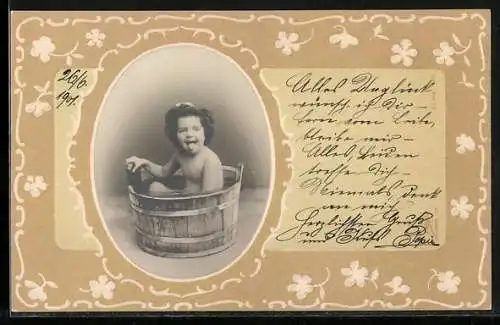 26/6.
1901.
Alles Unglück
wünsch ich Dir –
fern vom Leibe,
bleibe mir –
Alles Leiden
treffe Dich –
Niemals, denk
an mich
Herzlichsten Gruß
und Kuß